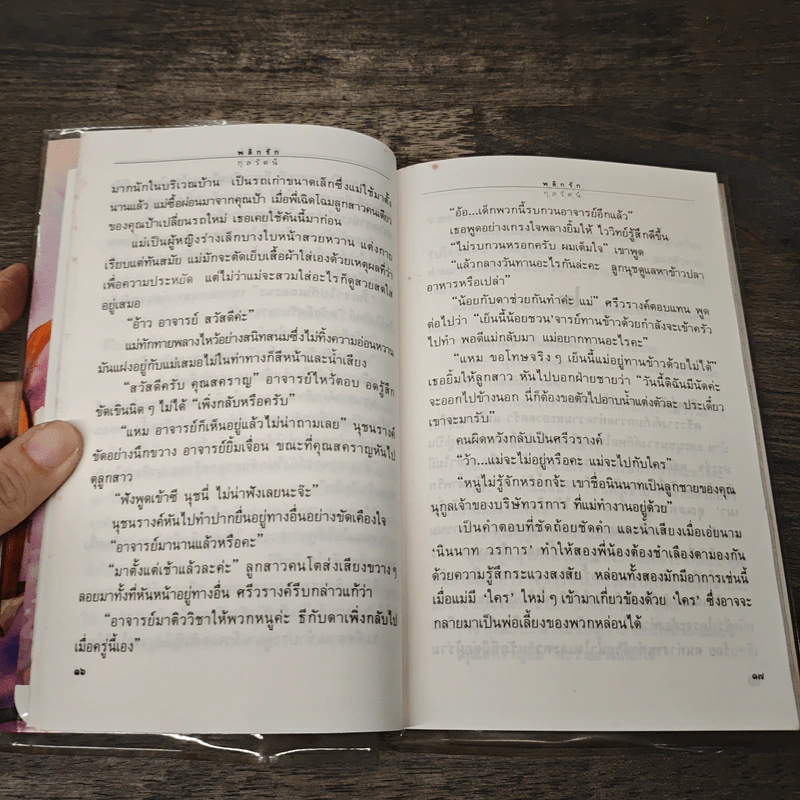 พลิกรัก
กุลรัตน์
มากนักในบริเวณบ้าน เป็นรถเก่าขนาดเล็กซึ่งแม่ใช้มาตั้ง
นานแล้ว แม่ซื้อผ่อนมาจากคุณป้า เมื่อพี่เฉิดโฉมลูกสาวคนเดียว
ของคุณป้าเปลี่ยนรถใหม่ เธอเคยใช้คันนี้มาก่อน
แม่เป็นผู้หญิงร่างเล็กบางใบหน้าสวยหวาน แต่งกาย
เรียบแต่ทันสมัย แม่มักจะตัดเย็บเสื้อผ้าใส่เองด้วยเหตุผลที่ว่า
เพื่อความประหยัด แต่ไม่ว่าแม่จะสวมใส่อะไรก็ดูสวยสดใส
อยู่เสมอ
“อ้าว อาจารย์ สวัสดีค่ะ”
แม่ทักทายพลางไหว้อย่างสนิทสนมซึ่งไม่ทิ้งความอ่อนหวาน
มันแฝงอยู่กับแม่เสมอไม่ในท่าทางก็สีหน้าและน้ำเสียง
“สวัสดีครับ คุณสคราญ” อาจารย์ไหว้ตอบ อดรู้สึก
ขัดเขินนิด ๆ ไม่ได้ “เพิ่งกลับหรือครับ”
“แหม อาจารย์ก็เห็นอยู่แล้วไม่น่าถามเลย” นุชนรางค์
ขัดอย่างนึกขวาง อาจารย์ยิ้มเจื่อน ขณะที่คุณสคราญหันไป
ดุลูกสาว
“ฟังพูดเข้าซี นุชนี่ ไม่น่าฟังเลยนะจ๊ะ”
นุชนรางค์หันไปทำปากยื่นอยู่ทางอื่นอย่างขัดเคืองใจ
“อาจารย์มานานแล้วหรือคะ”
“มาตั้งแต่เช้าแล้วละค่ะ” ลูกสาวคนโตส่งเสียงขวาง ๆ
ลอยมาทั้งที่หันหน้าอยู่ทางอื่น ศรีวรางค์รีบกล่าวแก้ว่า
“อาจารย์มาติววิชาให้พวกหนูค่ะ ธีกับดาเพิ่งกลับไป
เมื่อครู่นี้เอง”
๑๖
พลิกรัก
กุลรัตน์
“อ้อ...เด็กพวกนี้รบกวนอาจารย์อีกแล้ว”
เธอพูดอย่างเกรงใจพลางยิ้มให้ ไววิทย์รู้สึกดีขึ้น
“ไม่รบกวนหรอกครับ ผมเต็มใจ” เขาพูด
“แล้วกลางวันทานอะไรกันล่ะคะ ลูกนุชดูแลหาข้าวปลา
อาหารหรือเปล่า”
“น้อยกับดาช่วยกันทำค่ะ แม่” ศรีวรางค์ตอบแทน พูด
ต่อไปว่า “เย็นนี้น้อยชวน’จารย์ทานข้าวด้วยกำลังจะเข้าครัว
ไปทำ พอดีแม่กลับมา แม่อยากทานอะไรคะ”
“แหม ขอโทษจริง ๆ เย็นนี้แม่อยู่ทานข้าวด้วยไม่ได้”
เธอยิ้มให้ลูกสาว หันไปบอกฝ่ายชายว่า “วันนี้ดิฉันมีนัดค่ะ
จะออกไปข้างนอก นี่ก็ต้องขอตัวไปอาบน้ำแต่งตัวละ ประเดี๋ยว
เขาจะมารับ”
คนผิดหวังกลับเป็นศรีวรางค์
“ว้า...แม่จะไม่อยู่หรือคะ แม่จะไปกับใคร”
“หนูไม่รู้จักหรอกจ้ะ เขาชื่อนินนาทเป็นลูกชายของคุณ
นุกูลเจ้าของบริษัทวรการ ที่แม่ทำงานอยู่ด้วย”
เป็นคำตอบที่ชัดถ้อยชัดคำ และน้ำเสียงเมื่อเอ่ยนาม
‘นินนาท วรการ’ ทำให้สองพี่น้องต้องชำเลืองตามองกัน
ด้วยความรู้สึกระแวงสงสัย หล่อนทั้งสองมักมีอาการเช่นนี้
เมื่อแม่มี ‘ใคร’ ใหม่ ๆ เข้ามาเกี่ยวข้องด้วย ‘ใคร’ ซึ่งอาจจะ
กลายมาเป็นพ่อเลี้ยงของพวกหล่อนได้
๑๗